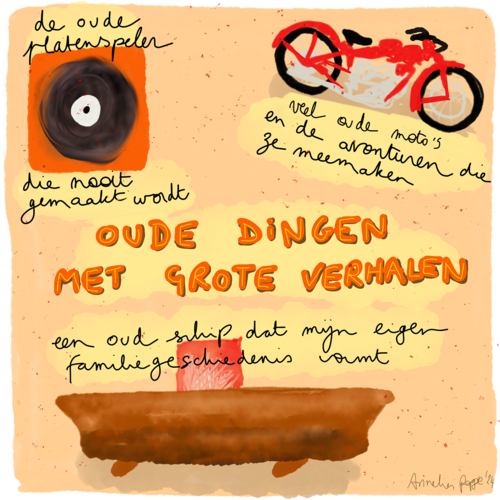 de oude
platenspeler
die nooit
gemaakt wordt
veel oude moto's
en de avonturen die
ze meemaken
OUDE DiNGEN
MET GROTE VERHALEN
een oud schip dat mijn eigen
familiegeschiedenis vormt